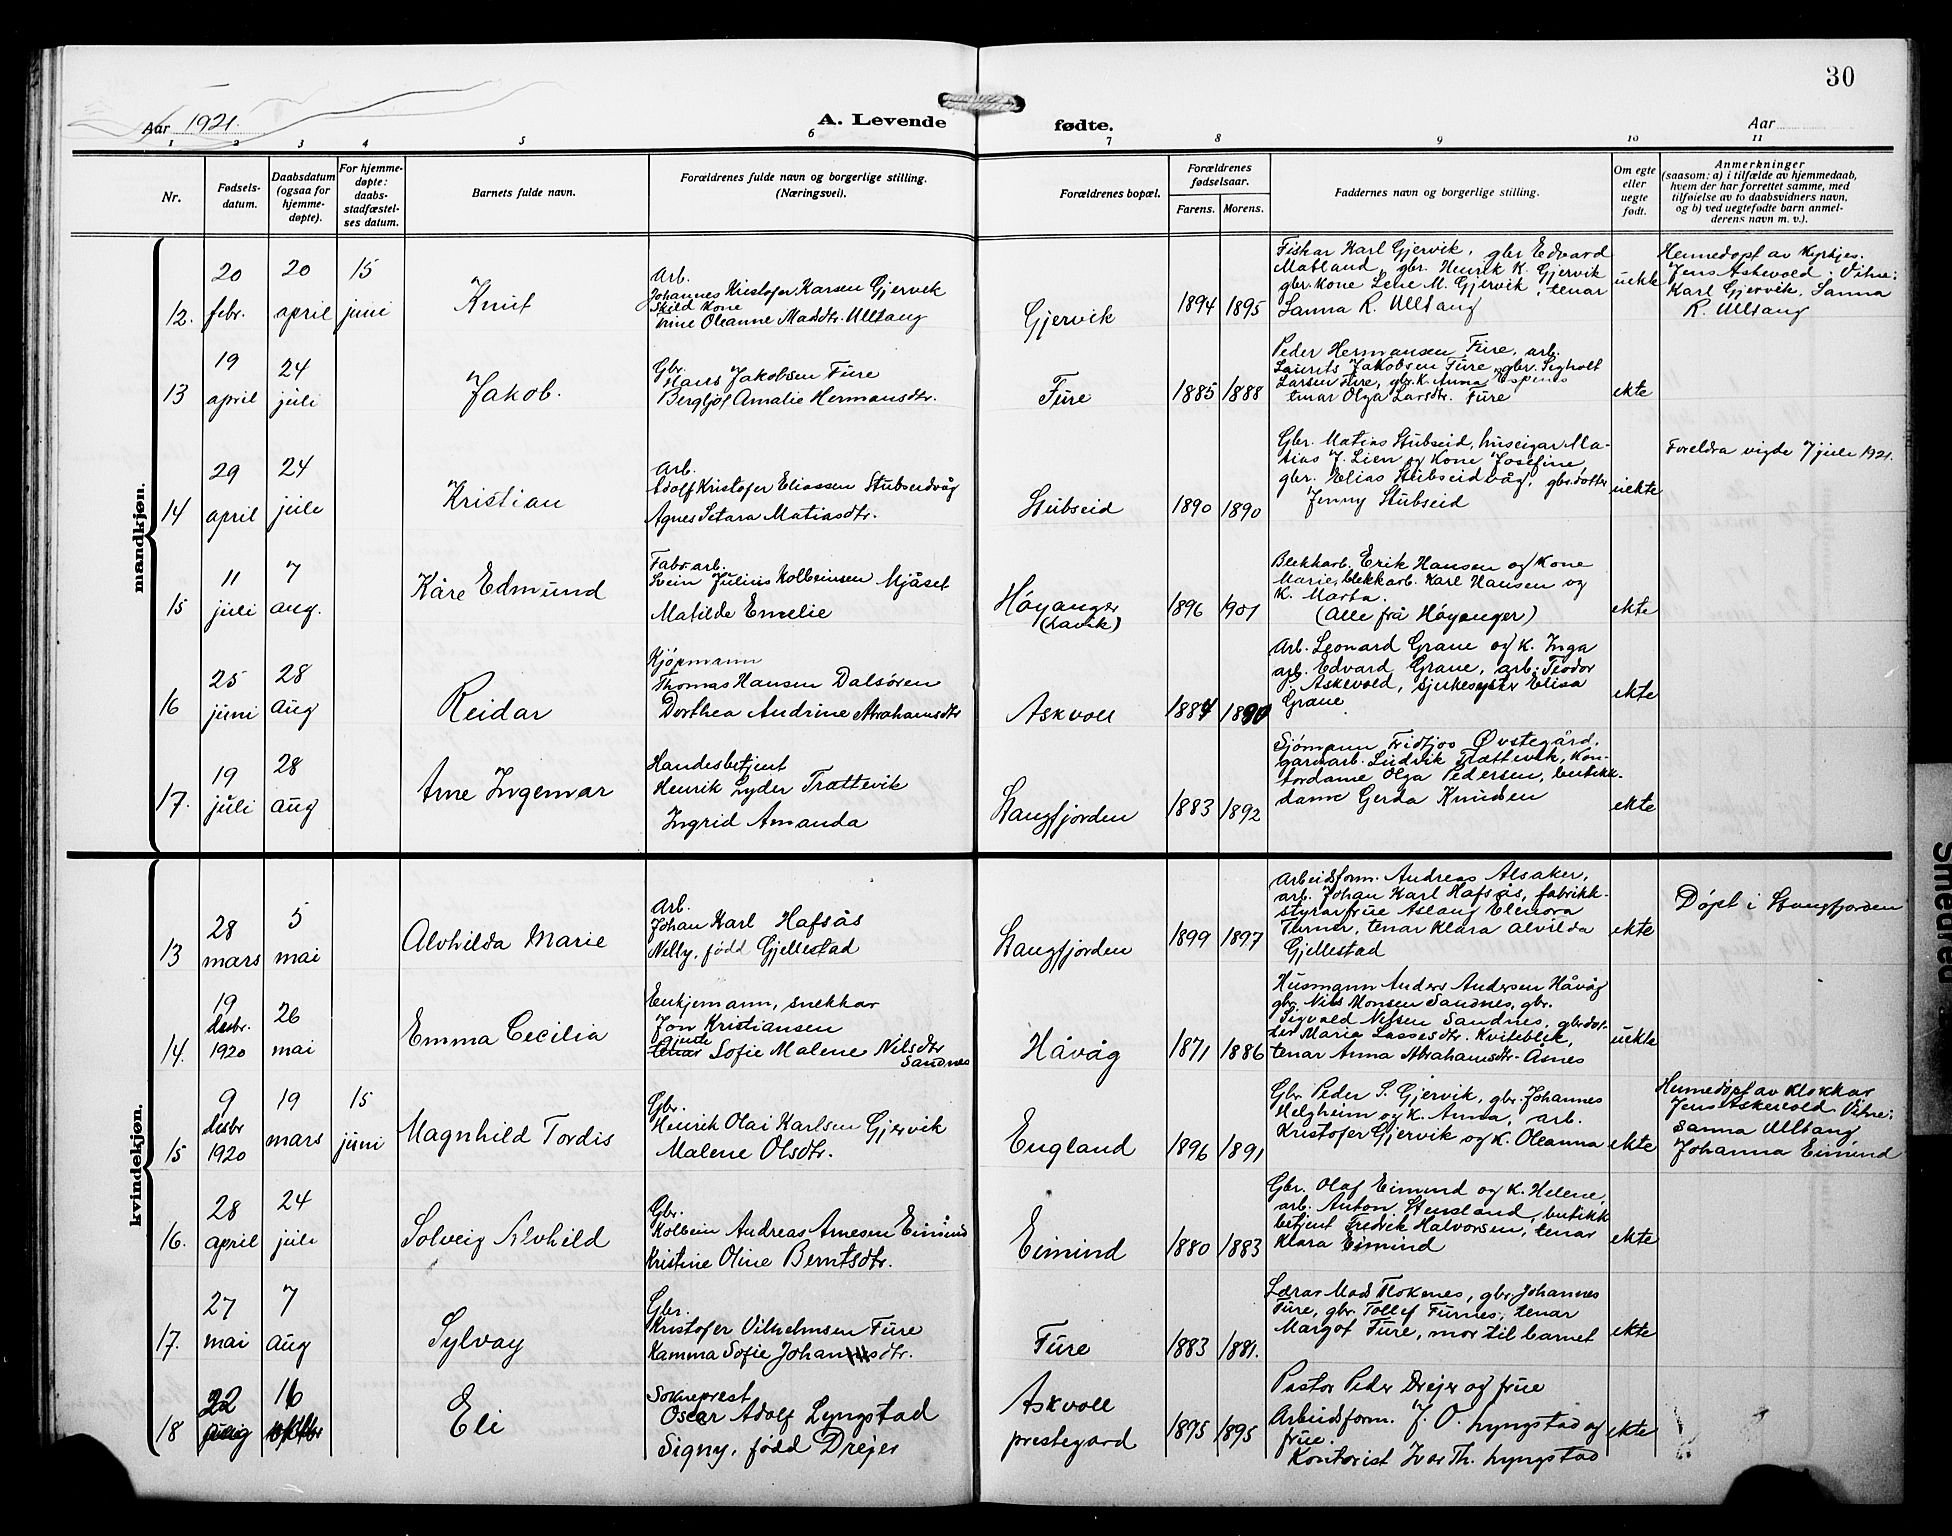 30
Aar 1921.
A. Levende fødte.
Aar
1 2 3 4 5 6 7 8 9 10 11
Nr.
Fødsels-
datum.
Daabsdatum
(ogsaa for
hjemme-
døpte).
For hjemme-
døpte:
daabs-
stadfæstel-
ses datum.
Barnets fulde navn.
Forældrenes fulde navn og borgerlige stilling.
(Næringsvei).
Forældrenes bopæl.
Forældrenes
fødselsaar.
Farens. Morens.
Faddernes navn og borgerlige stilling.
Om egte
eller
uegte
født.
Anmerkninger
(saasom: a) i tilfælde av hjemmedaab,
hvem der har forrettet samme, med
tilføielse av to daabsvidners navn,
og b) ved uegtefødte barn anmel-
derens navn m. v.).
mandkjøn.
12. 20 febr. 20 april 15 juni
Knut
Arb.
Johannes Kristofer Karsen Gjervik
Skild Kone
Trine Oleanne Madsdtr. Ulltang
Gjervik
1894 1895
Fiskar Karl Gjervik, gbr Edvard
Matland, gbr. Henrik K. Gjervik
gbr. Kone Lene M. Gjervik, tenar
Sanna R. Ulltang
uekte
Heimedøpt av Kyrkjes.
Jens Askevold. Vitne:
Karl Gjervik, Sanna
R. Ulltang
13 19 april 24 juli
Jakob.
Gbr.
Hans Jakobsen Fure
Bergljot Amalie Hermansdtr.
Fure
1885 1888
Peder Hermansen Fure, arb.
Laurits Jakobsen Fure, gbr. Sigholt
Larsen Fure, gbr. K. Anna Espenes
tenar Olga Larsdtr. Fure
ekte
14 29 april 24 juli
Kristian
Arb.
Adolf Kristofer Eliassen Stubseidvåg
Agnes Setara Matiasdtr.
Stubseid
1890 1890
Gbr. Matias Stubseid, huseigar Ma-
tias J. Lien og Kone Josefine,
gbr. Elias Stubseidvåg, gbr.dotter
Jenny Stubseid
uekte
Foreldra vigde 7 juli 1921.
15 11 juli 7 aug.
Kåre Edmund
Fabr.arb.
Svein Julius Kolbeinsen Mjåset
Matilde Emelie
Høyanger
(Lavik)
1896 1901
Blekkarb. Erik Hansen og Kone
Marie, blekkarb. Karl Hansen og
K. Marta.
(Alle frå Høyanger)
ekte
16 25 juni 28 aug
Reidar
Kjøpmann
Thomas Hansen Dalsøren
Dorthea Andrine Abrahamsdtr
Askvoll
1884 1890
Arb. Leonard Grane og K. Inga
arb. Edvard Grane, arb. Teodor
J. Askevold, sjukesyster Elisa
Grane
ekte
17. 19 juli 28 aug
Arne Ingemar
Handesbetjent
Henrik Lyder Trættevik
Ingrid Amanda
Stangfjorden
1883 1892
Sjømann Fridtjov Øvstegård,
garnarb. Ludvik Trættevik, Kon-
tordame Olga Pedersen, butikk-
dame Gerda Knudsen
ekte
kvindekjøn.
13 28 mars 5 mai
Alvhilda Marie
Arb.
Johan Karl Hafsås
Nelly, fødd Gjellestad
Stangfjorden
1899 1897
Arbeidsform. Andreas Alsaker,
arb. Johan Karl Hafsås, fabrikk-
styrarfrue Aslaug Elenora
Turner, tenar Klara Alvilda
Gjellestad
ekte
Døpt i Stangfjorden
14. 19 desbr. 1920 26 mai
Emma Cecilia
Enkjemann, snekkar
Jon Kristiansen
Gjente
tenar Sofie Malene Nilsdtr
Sandnes
Håvåg
1871 1886
Husmann Anders Andersen Håvåg
gbr. Nils Monsen Sandnes, gbr.
Sigvald Nilsen Sandnes, gbr.dot-
ter Marie Lassesdtr. Kviteblik,
tenar Anna Abrahamsdtr. Åsnes
uekte
15 9 desbr 1920 19 mars 15 juni
Magnhild Tordis
Gbr.
Henrik Olai Karlsen Gjervik
Malene Olsdtr.
England
1896 1891
Gbr. Peder S. Gjervik, gbr. Johannes
Helgheim og K. Anna, arb.
Kristofer Gjervik og K. Oleanna
ekte
Heimedøpt av Klokkar
Jens Askevold. Vitne:
Sanna Ulltang
Johanna Eimind
16. 28 april 24 juli
Solveig Alvhild
Gbr.
Kolbein Andreas Arnesen Eimind
Kristine Oline Berntsdtr.
Eimind
1880 1883
Gbr. Olaf Eimind og K. Helene,
arb. Anton Stensland, butikk-
betjent Fredrik Halvorsen, tenar
Klara Eimind
ekte
17. 27 mai 7 aug
Sylvay
Gbr.
Kristofer Vilhelmsen Fure
Kamma Sofie Johannesdtr.
Fure
1883 1881.
Lærar Mads Flokenes, gbr. Johannes
Fure, gbr. Tollef Furnes, tenar
Margot Fure, mor til barnet
ekte
18 22 16
Eli
Sokneprest
Oscar Adolf Lyngstad
Signy, fødd Drejer
Askvoll
prestegard
1895 1895
Pastor Peder Drejer og frue
Arbeidsform. J. O. Lyngstad og
frue.
Kontorist Ivar Th. Lyngstad
ekte